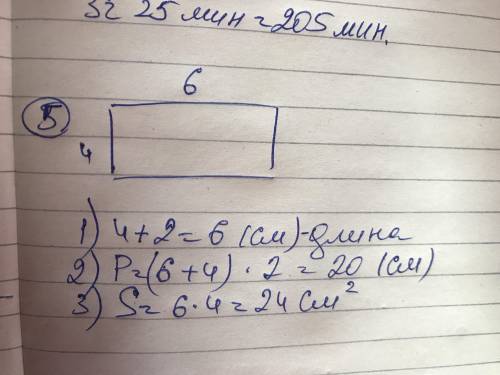 3ч 25 мин = 205 мин.
6
5
4
1) 4+2=6 (см)-длина
2) P=(6+4)·2=20 (см)
3) S=6·4=24 см²